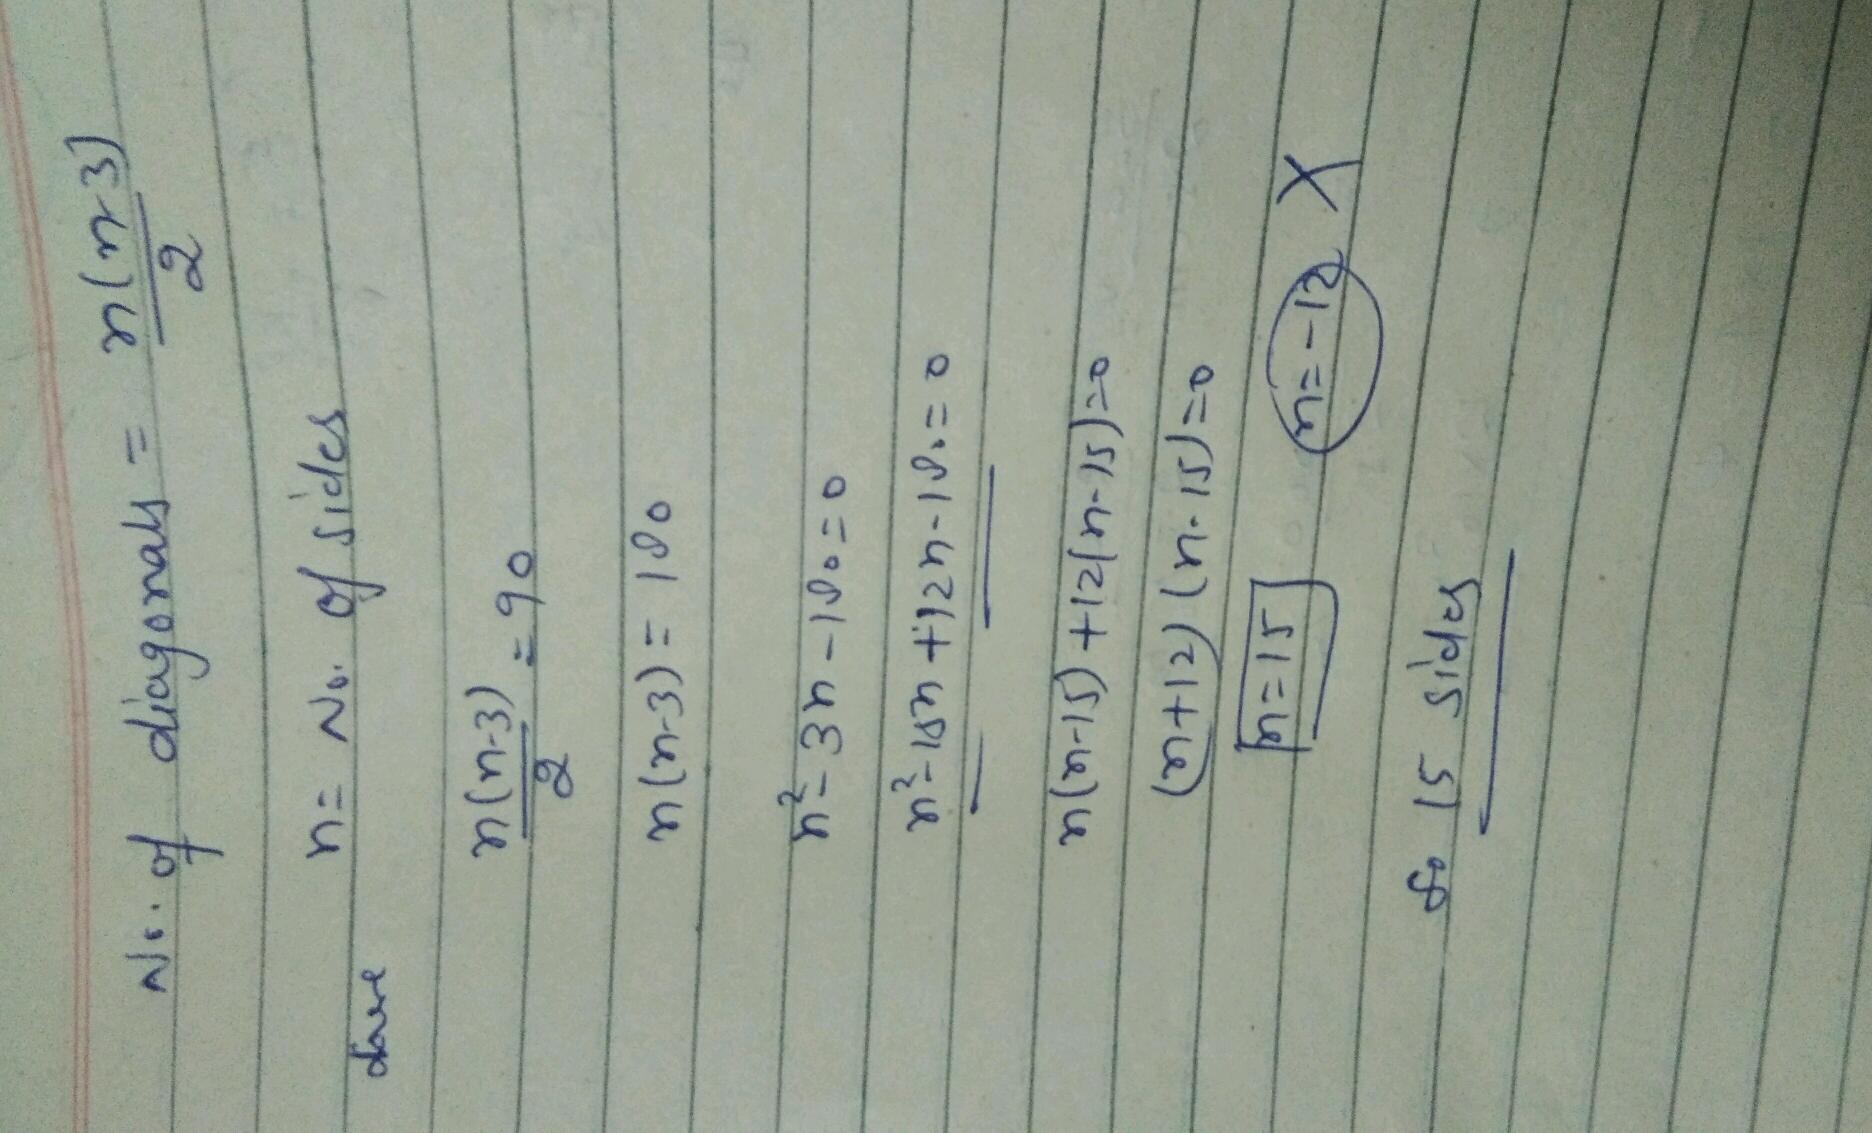 No. of diagonals = n(n-3)/2
n = No. of sides
n(n-3)/2 = 90
n(n-3) = 180
n² - 3n - 180 = 0
n² - 15n + 12n - 180 = 0
n(n-15) + 12(n-15) = 0
(n+12) (n-15) = 0
n = 15 n = -12 X
So 15 sides